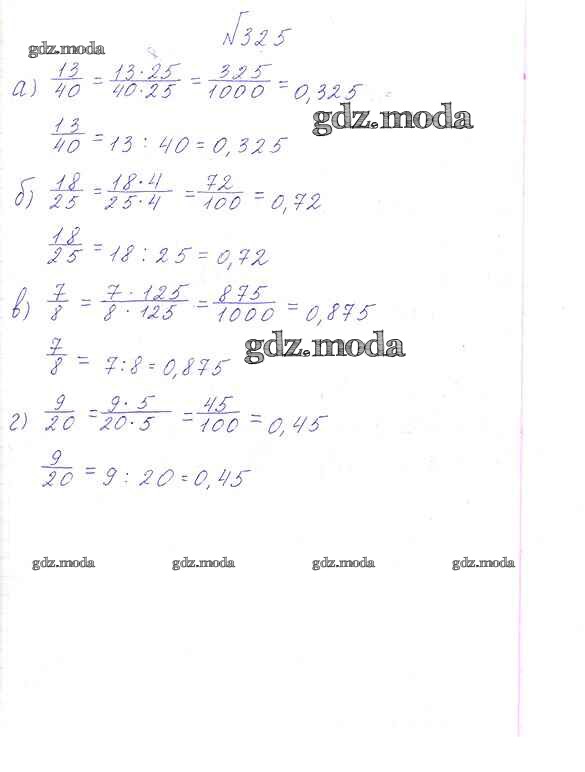 №325
gdz.moda
а) 13/40 = 13·25/40·25 = 325/1000 = 0,325
gdz.moda
13/40 = 13 : 40 = 0,325
б) 18/25 = 18·4/25·4 = 72/100 = 0,72
18/25 = 18 : 25 = 0,72
в) 7/8 = 7·125/8·125 = 875/1000 = 0,875
gdz.moda
7/8 = 7:8 = 0,875
г) 9/20 = 9·5/20·5 = 45/100 = 0,45
9/20 = 9 : 20 = 0,45
gdz.moda gdz.moda gdz.moda gdz.moda